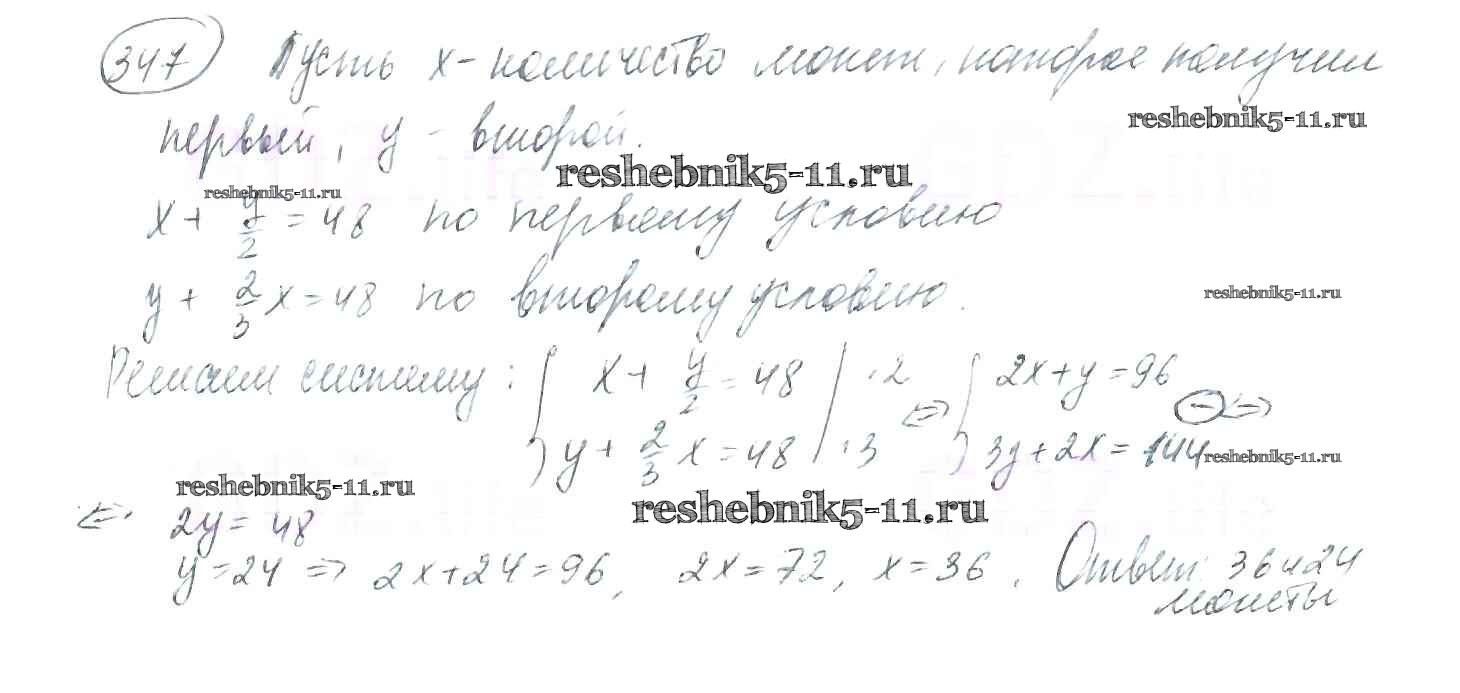 347 Пусть x - количество монет, которое получил
reshebnik5-11.ru
первый, y - второй.
reshebnik5-11.ru
reshebnik5-11.ru
x + y/2 = 48 по первому условию
y + 2/3 x = 48 по второму условию.
reshebnik5-11.ru
Решаем систему: { x + y/2 = 48 | ·2 ⇔ { 2x + y = 96 ⊖ ⇔
y + 2/3 x = 48 | ·3 3y + 2x = 144
reshebnik5-11.ru
reshebnik5-11.ru
reshebnik5-11.ru
⇔ 2y = 48
y = 24 ⇒ 2x + 24 = 96, 2x = 72, x = 36. Ответ: 36 и 24
монеты